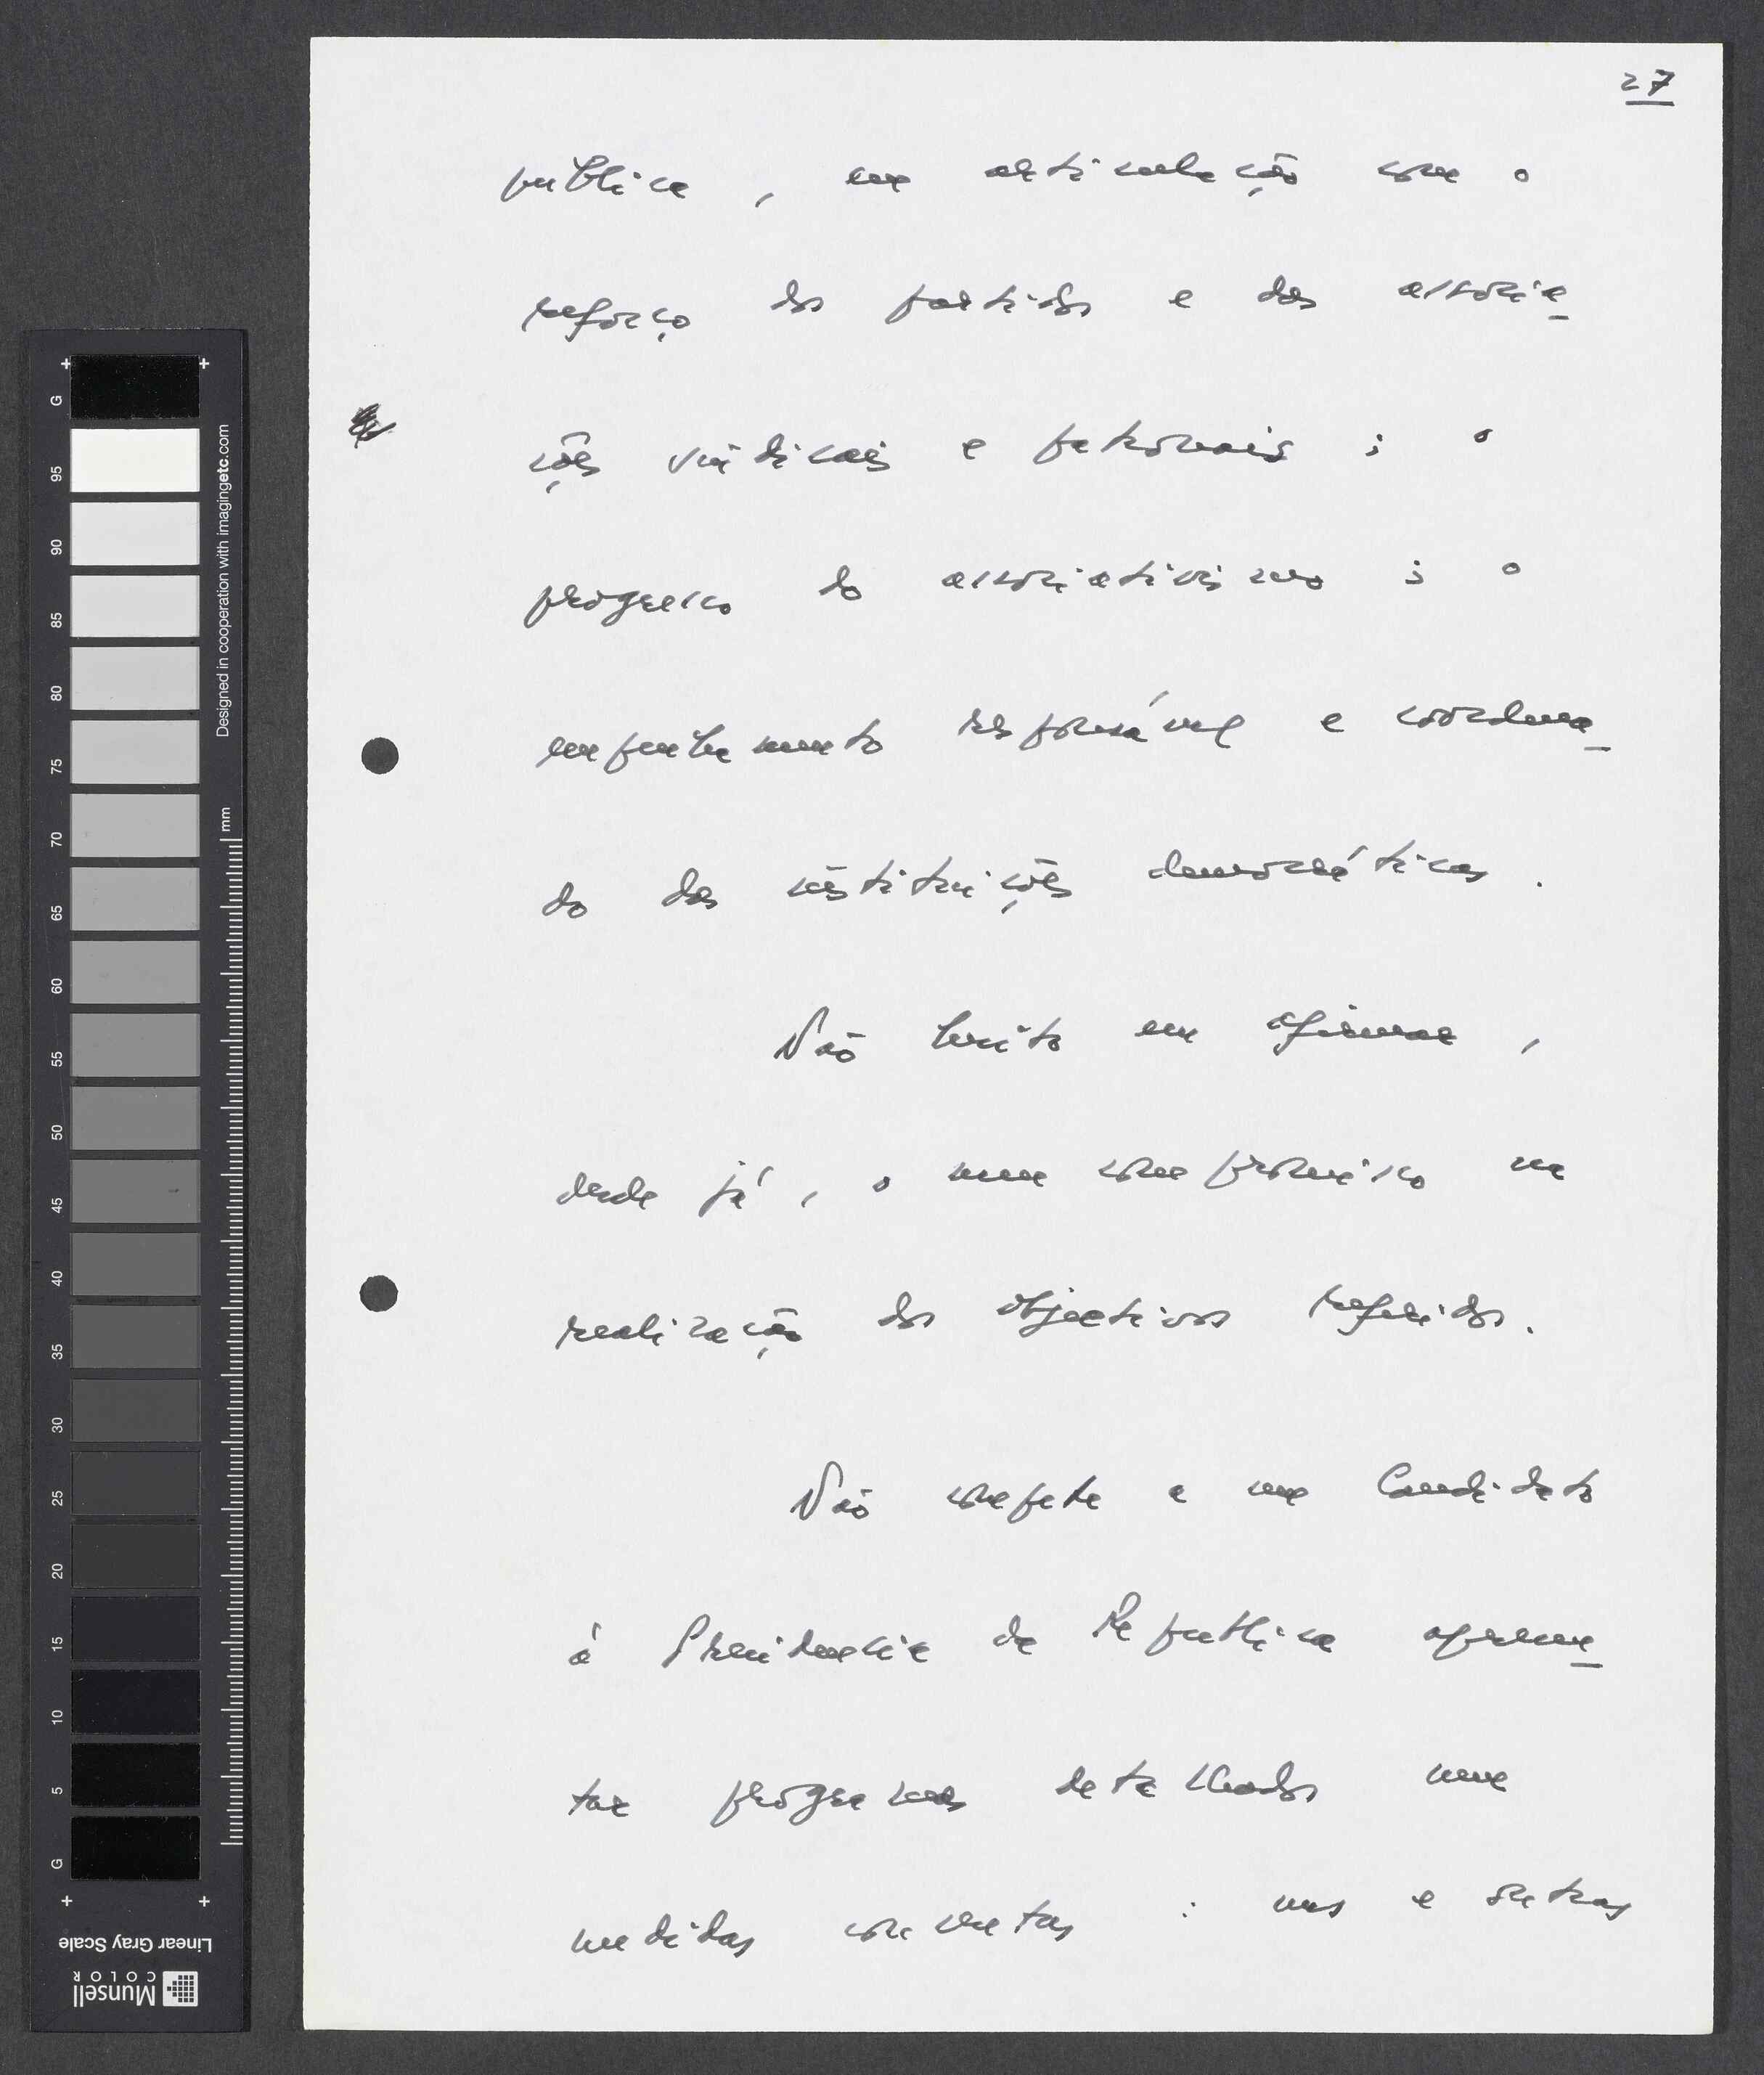 27
pública, em articulação com o
reforço dos partidos e das associa
ções sindicais e patronais; o
progresso do associativismo; o
empenhamento responsável e coordena
do das instituições democráticas.
Não hesito em afirmar,
desde já, o meu compromisso na
realização dos objectivos referidos.
Não compete a um Candidato
à Presidência da República apresen
tar programas detalhados nem
medidas concretas: uns e outras
G
95
90
85
80
75
70
65
60
55
50
45
40
35
30
25
20
15
10
5
G
mm
Designed in cooperation with imagingetc.com
Linear Gray Scale
Munsell
COLOR